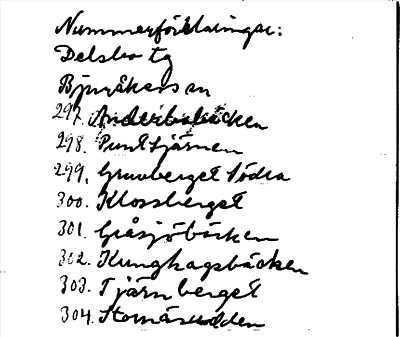 Nummerförklaringar:
Delsbo tg
Bjuråkers sn
297. Anderbobäcken
298. Puntjärnen
299. Gruvberget Södra
300. Klossberget
301. Gråsjöbäcken
302. Kunghagsbäcken
303. Tjärnberget
304.